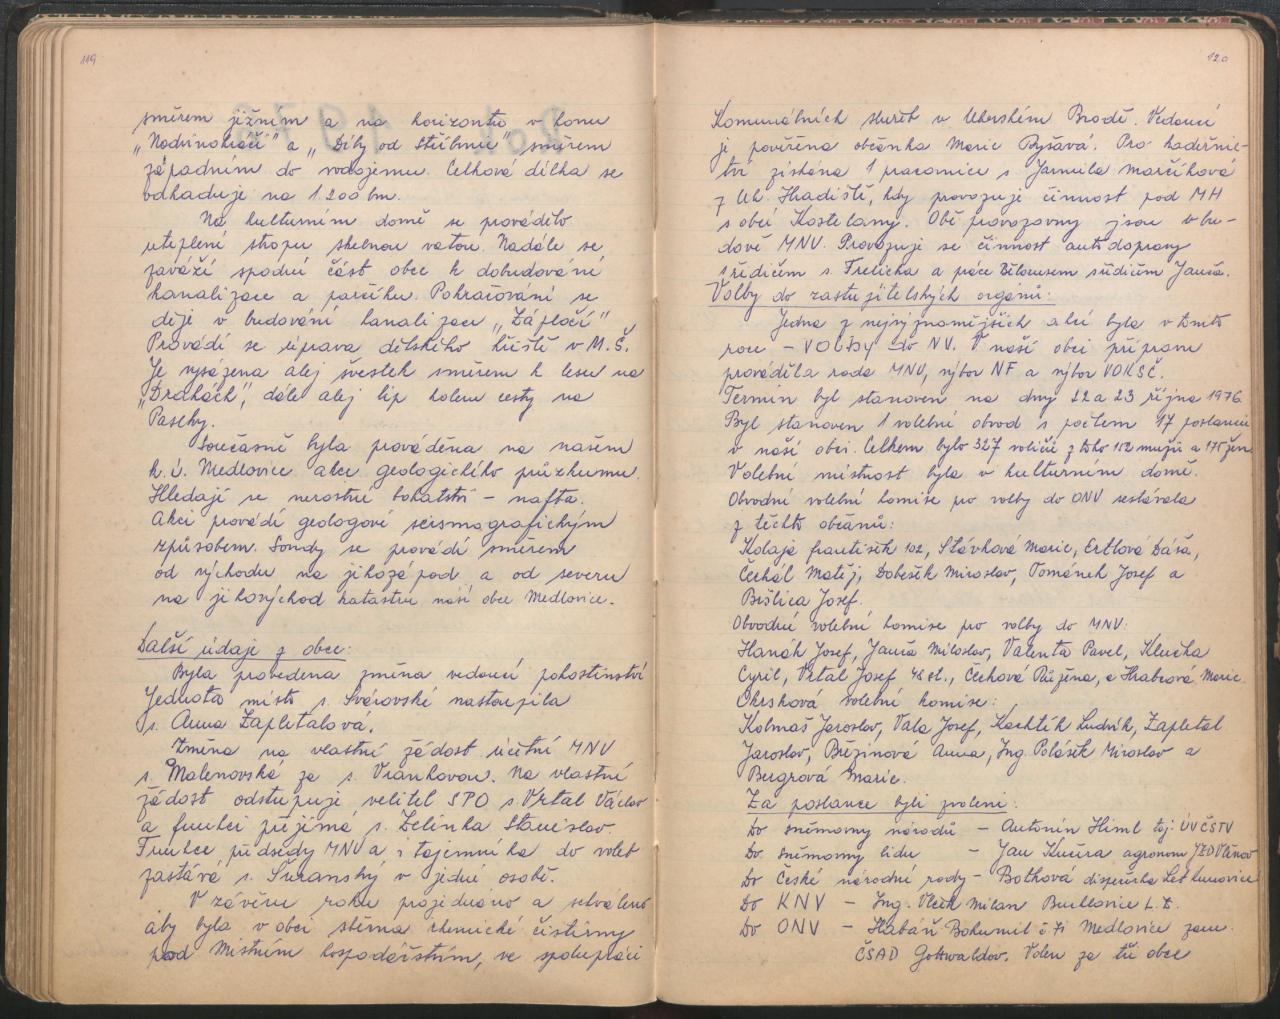 119
směrem jižním a na horizontu v honu
„Nadvinohrací" a „Díly od Stříbrnic" směrem
západním do vodojemu. Celková délka se
odhaduje na 1200 bm.
Na kulturním domě se provádělo
uteplení stropu skelnou vatou. Nadále se
zaváží spodní část obce k dobudování
kanalizace a parčíku. Pokračování se
děje v budování kanalizace „Zápločí"
Provádí se úprava dětského hřiště v M.Š.
Je vysázena alej švestek směrem k lesu na
„Drdkách", dále alej lip kolem cesty na
Paseky.
Současně byla prováděna na našem
k.ú. Medlovice akce geologického průzkumu.
Hledají se nerostné bohatství – nafta.
Akci provádí geologové seismografickým
způsobem. Sondy se provádí směrem
od východu na jihozápad a od severu
na jihovýchod katastru naší obce Medlovice.
Další údaje z obce:
Byla provedena změna vedoucí pohostinství
Jednota místo s. Svárovské nastoupila
s. Anna Zapletalová.
Změna na vlastní žádost účetní MNV
s. Malenovská za s. Vrankovou. Na vlastní
žádost odstupuje velitel SPO s. Vrtal Václav
a funkci přejímá s. Zelinka Stanislav.
Funkce předsedy MNV a i tajemníka do voleb
zastává s. Šuranský v jedné osobě.
V závěru roku projednáno a schváleno
aby byla v obci sběrna chemické čistírny
pod Místním hospodářstvím, ve spolupráci
120
Komunálních služeb v Uherském Brodě. Vedoucí
je pověřena občanka Marie Ryšavá. Pro kadeřnic-
tví získána 1 pracovnice s. Jarmila Marčíková
z Uh. Hradiště, kdy provozuje činnost pod MH
s obcí Kostelany. Obě provozovny jsou v bu-
dově MNV. Provozuje se činnost autodopravy
s řidičem s. Trlicka a práce Bělorusem s řidičem Janča.
Volby do zastupitelských orgánů:
Jedna z nejvýznamějších akcí byla v tomto
roce – VOLBY do NV. V naší obci přípravu
prováděla rada MNV, výbor NF a výbor VOKSČ.
Termín byl stanoven na dny 22 a 23 října 1976.
Byl stanoven 1 volební obvod s počtem 17 poslanců
v naší obci. Celkem bylo 327 voličů z toho 152 mužů a 175 žen
Volební místnost byla v kulturním domě.
Obvodní volební komise pro volby do ONV sestávala
z těchto občanů:
Kolaja František 102, Stávková Marie, Ertlová Dáša,
Čechál Matěj, Dobešík Miroslav, Tománek Josef a
Bršlica Josef.
Obvodní volební komise pro volby do MNV:
Hanák Josef, Janča Miloslav, Valenta Pavel, Klučka
Cyril, Vrtal Josef 48 st., Čechová Růžena, a Hrabcová Marie.
Okrsková volební komise:
Kolmaš Jaroslav, Vala Josef, Kachtík Ludvík, Zapletal
Jaroslav, Březinová Anna, Ing. Polášek Miroslav a
Bergrová Marie.
Za poslance byli zvoleni:
Do sněmovny národů – Antonín Himl taj. ÚVČSTV
Do sněmovny lidu – Jan Kučera agronom JZD Vlčnov
Do České národní rady – Botková dispečerka Let Kunovice
Do KNV – Ing. Vlček Milan Buchlovice L.Z.
Do ONV – Habáň Bohumil č 71 Medlovice zam.
ČSAD Gottwaldov. Volen za tři obce